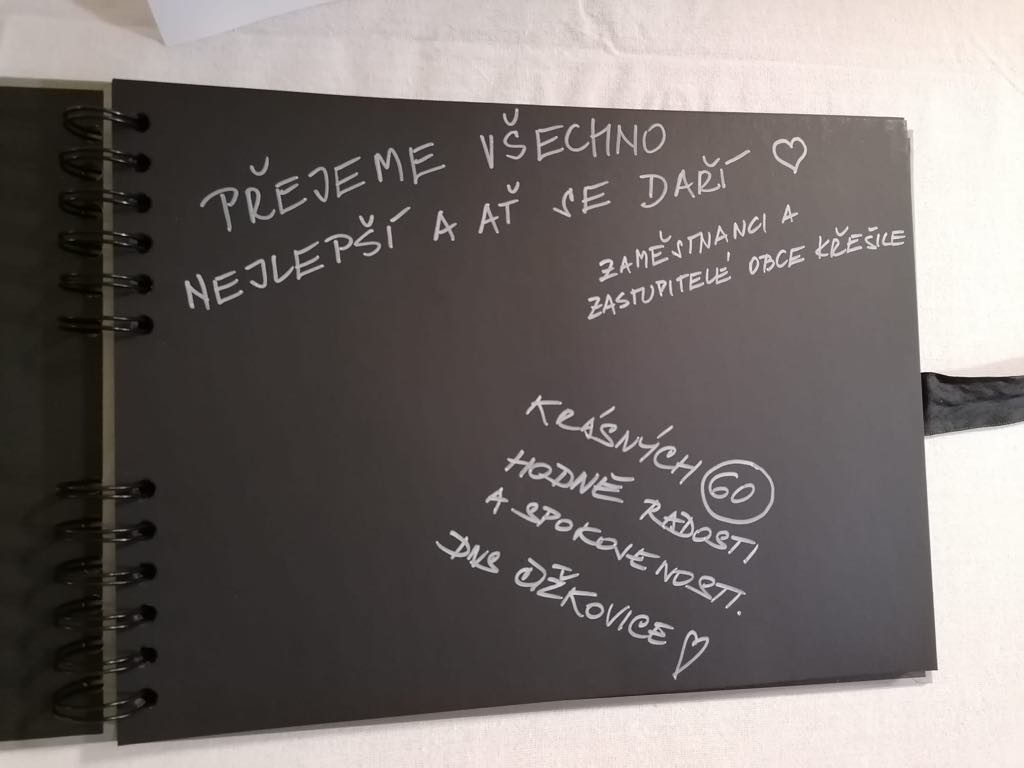 PŘEJEME VŠECHNO
NEJLEPŠÍ A AŤ SE DAŘÍ ♡
ZAMĚSTNANCI A
ZASTUPITELÉ OBCE KŘEŠICE
KRÁSNÝCH 60
HODNĚ RADOSTI
A SPOKOJENOSTI.
DNS ČÍŽKOVICE ♡